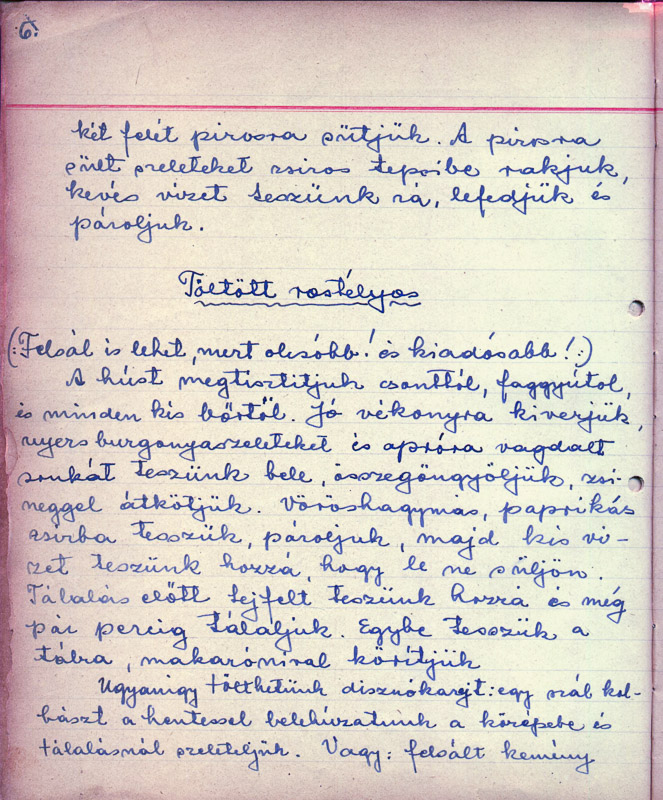 6.
két felét pirosra sütjük. A pirosra
sült szeleteket zsiros tepsibe rakjuk,
kevés vizet teszünk rá, lefedjük és
pároljuk.
Töltött rostélyos
(:Felsál is lehet, mert olcsóbb! és kiadósabb!:)
A húst megtisztitjuk csonttól, faggyútol,
és minden kis bőrtől. Jó vékonyra kiverjük,
nyers burgonyaszeleteket és apróra vagdalt
sonkát teszünk bele, összegöngyöljük, zsi-
neggel átkötjük. Vöröshagymás, paprikás
zsirba tesszük, pároljuk, majd kis vi-
zet teszünk hozzá, hogy le ne süljön.
Tálalás előtt tejfelt teszünk hozzá és még
pár percig tálaljuk. Egybe tesszük a
tálra, makarónival körítjük
Ugyanigy tölthetünk disznókarajt: egy szál kol-
bászt a hentessel belehúzatunk a közepébe és
tálalásnál szeleteljük. Vagy: felsált kemény